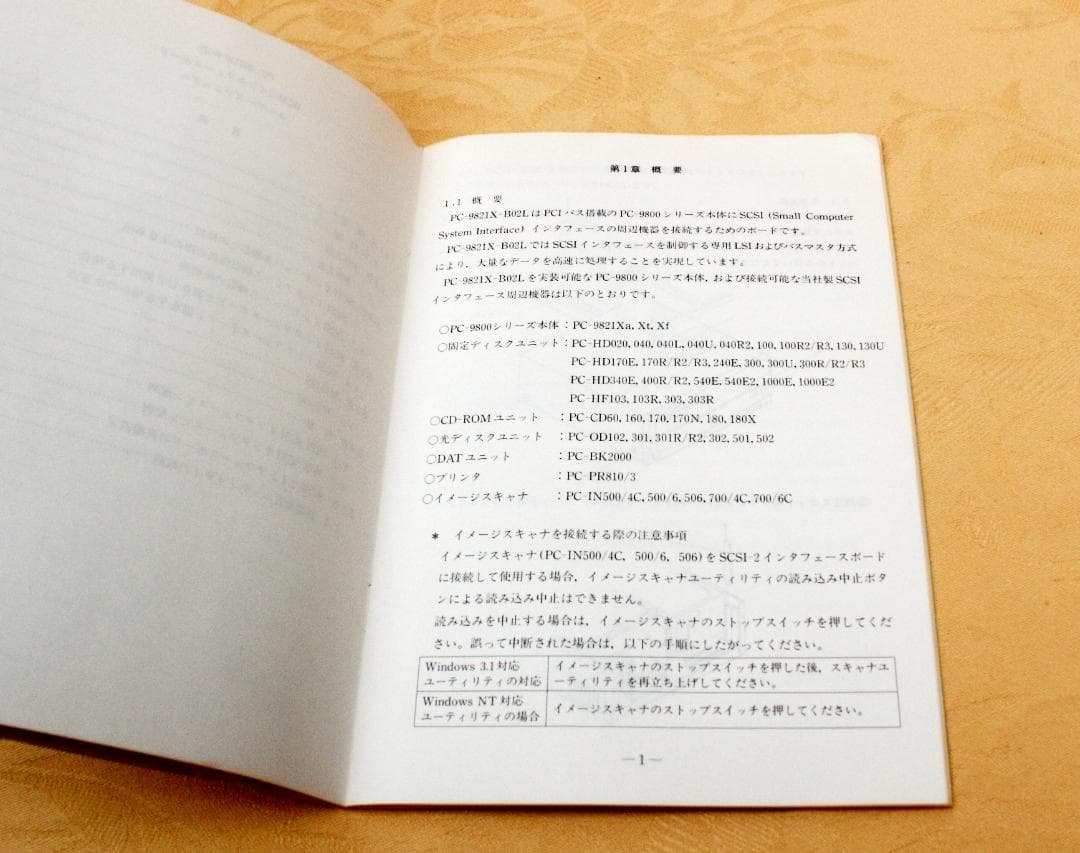 第1章 概 要
1.1 概 要
PC-9821X-B02LはPCIバス搭載のPC-9800シリーズ本体にSCSI (Small Computer
System Interface) インタフェースの周辺機器を接続するためのボードです。
PC-9821X-B02LではSCSIインタフェースを制御する専用LSIおよびバスマスタ方式
により，大量なデータを高速に処理することを実現しています。
PC-9821X-B02Lを実装可能なPC-9800シリーズ本体，および接続可能な当社製SCSI
インタフェース周辺機器は以下のとおりです。
○PC-9800シリーズ本体：PC-9821Xa, Xt, Xf
○固定ディスクユニット：PC-HD020, 040, 040L, 040U, 040R2, 100, 100R2/R3, 130, 130U
PC-HD170E, 170R/R2/R3, 240E, 300, 300U, 300R/R2/R3
PC-HD340E, 400R/R2, 540E, 540E2, 1000E, 1000E2
PC-HF103, 103R, 303, 303R
○CD-ROMユニット ：PC-CD60, 160, 170, 170N, 180, 180X
○光ディスクユニット ：PC-OD102, 301, 301R/R2, 302, 501, 502
○DATユニット ：PC-BK2000
○プリンタ ：PC-PR810/3
○イメージスキャナ ：PC-IN500/4C, 500/6, 506, 700/4C, 700/6C
* イメージスキャナを接続する際の注意事項
イメージスキャナ(PC-IN500/4C, 500/6, 506)をSCSI-2インタフェースボード
に接続して使用する場合，イメージスキャナユーティリティの読み込み中止ボタ
ンによる読み込み中止はできません。
読み込みを中止する場合は，イメージスキャナのストップスイッチを押してくだ
さい。誤って中断された場合は，以下の手順にしたがってください。
Windows 3.1対応 イメージスキャナのストップスイッチを押した後，スキャナユ
ユーティリティの対応 ーティリティを再立ち上げしてください。
Windows NT対応
ユーティリティの場合 イメージスキャナのストップスイッチを押してください。
—1—